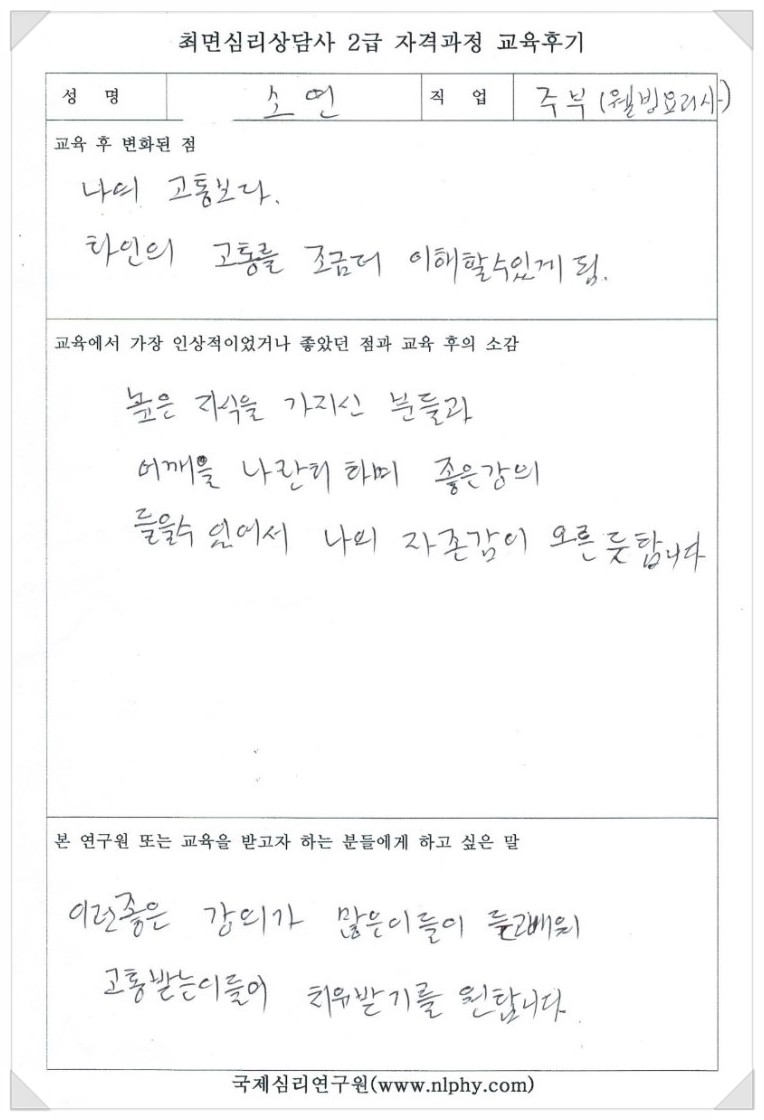 최면심리상담사 2급 자격과정 교육후기
성 명 소 연 직 업 주부 (웰빙요리사)
교육 후 변화된 점
나의 고통보다.
타인의 고통를 조금더 이해할수있게 됨.
교육에서 가장 인상적이었거나 좋았던 점과 교육 후의 소감
높은 지식을 가지신 분들과
어깨을 나란히 하며 좋은강의
들을수 있어서 나의 자존감이 오른 듯합니다
본 연구원 또는 교육을 받고자 하는 분들에게 하고 싶은 말
이런좋은 강의가 많은이들이 듣고배워
고통받는이들이 치유받기를 원합니다.
국제심리연구원(www.nlphy.com)